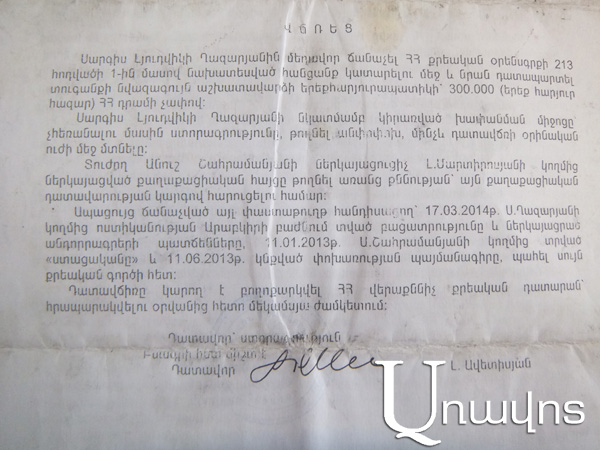 Վ Ճ Ռ Ե Ց
Սարգիս Լյուդվիկի Ղազարյանին մեղավոր ճանաչել ՀՀ քրեական օրենսգրքի 213
հոդվածի 1-ին մասով նախատեսված հանցանք կատարելու մեջ և նրան դատապարտել
տուգանքի նվազագույն աշխատավարձի երեքհարյուրապատիկի՝ 300.000 (երեք հարյուր
հազար) ՀՀ դրամի չափով:
Սարգիս Լյուդվիկի Ղազարյանի նկատմամբ կիրառված խափանման միջոցը՝
չհեռանալու մասին ստորագրությունը, թողնել անփոփոխ, մինչև դատավճռի օրինական
ուժի մեջ մտնելը:
Տուժող Անուշ Շահրամանյանի ներկայացուցիչ Լ.Մարտիրոսյանի կողմից
ներկայացված քաղաքացիական հայցը թողնել առանց քննության՝ այն քաղաքացիական
դատավարության կարգով հարուցելու համար:
Ապացույց ճանաչված այլ փաստաթուղթ հանդիսացող՝ 17.03.2014թ. Ս.Ղազարյանի
կողմից ոստիկանության Արաբկիրի բաժնում տված բացատրությունը և ներկայացրած
անդորրագրերի պատճենները, 11.01.2013թ. Ա.Շահրամանյանի կողմից տրված
«ստացականը» և 11.06.2013թ. կնքված փոխառության պայմանագիրը, պահել սույն
քրեական գործի հետ:
Դատավճիռը կարող է բողոքարկվել ՀՀ վերաքննիչ քրեական դատարան՝
հրապարակվելու օրվանից հետո մեկամսյա ժամկետում:
Դատավոր՝ ստորագրություն
Բնագրի հետ ճիշտ է
Դատավոր Լ. Ավետիսյան
Առավոտ